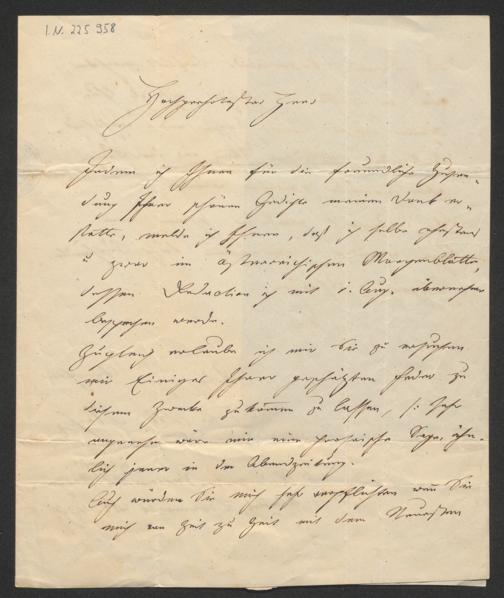 I.N. 225 958
Hochgeehrtester Herr
Indem ich Ihnen für die freundliche Zusen-
dung Ihrer schönen Gedichte meinen Dank er-
statte, melde ich Ihnen, daß ich selbe ehestens
u zwar im österreichischen Morgenblatte,
dessen Redaction ich mit 1. Aug. übernehme
besprechen werde.
Zugleich erlaube ich mir Sie zu ersuchen
mir Einiges Ihrer geschätzten Feder zu
diesem Zwecke zukommen zu lassen, /: Sehr
angenehm wäre mir eine prosaische Sage, ähn-
lich jener in der Abendzeitung.
Auch würden Sie mich sehr verpflichten wenn Sie
mich von Zeit zu Zeit mit dem Neuesten